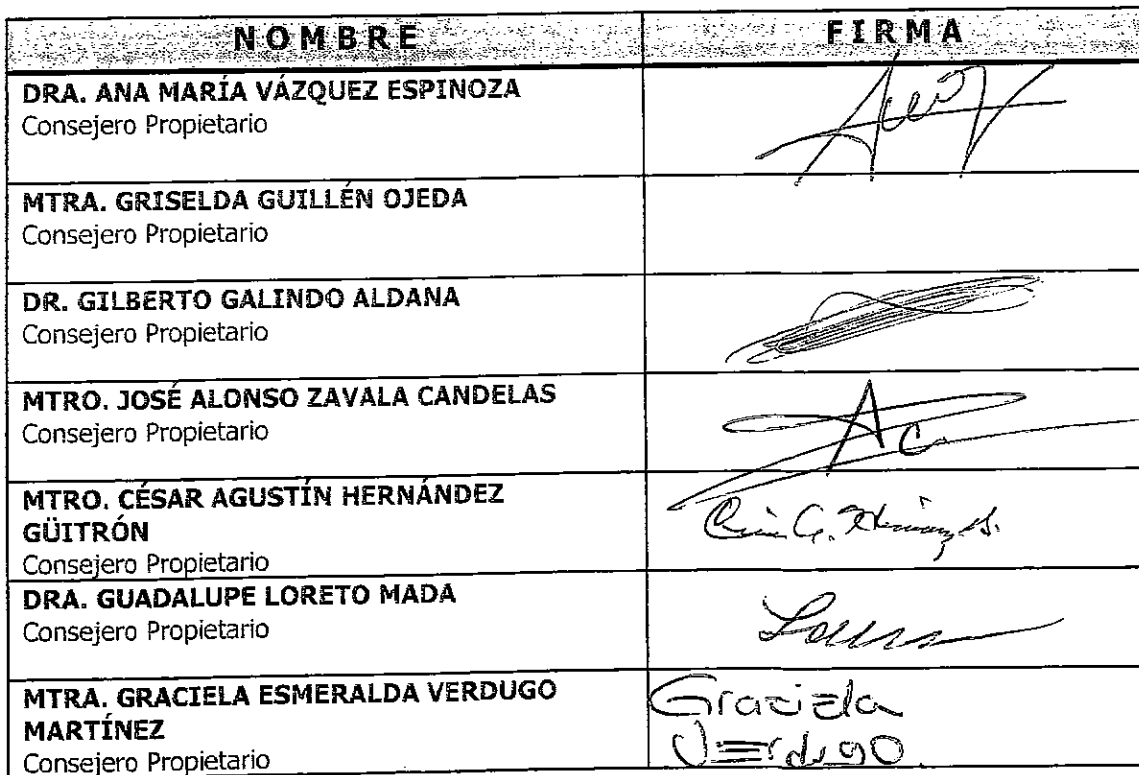 NOMBRE FIRMA
DRA. ANA MARÍA VÁZQUEZ ESPINOZA
Consejero Propietario
MTRA. GRISELDA GUILLÉN OJEDA
Consejero Propietario
DR. GILBERTO GALINDO ALDANA
Consejero Propietario
MTRO. JOSÉ ALONSO ZAVALA CANDELAS
Consejero Propietario
MTRO. CÉSAR AGUSTÍN HERNÁNDEZ
GÜITRÓN
Consejero Propietario
DRA. GUADALUPE LORETO MADA
Consejero Propietario
MTRA. GRACIELA ESMERALDA VERDUGO
MARTÍNEZ
Consejero Propietario
Graciela
Verdugo